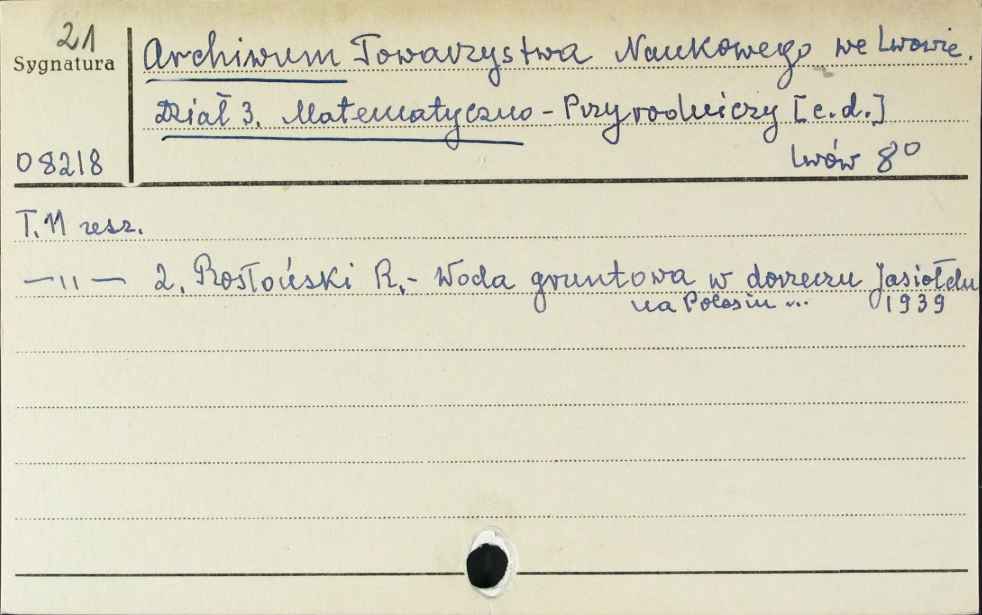 21
Sygnatura
Archiwum Towarzystwa Naukowego we Lwowie.
Dział 3. Matematyczno - Przyrodniczy [c.d.]
08218
Lwów 8°
T. 11 zesz.
—〃— 2. Rostoński R. - Woda gruntowa w dorzeczu Jasiołdu
na Polesiu ... 1939